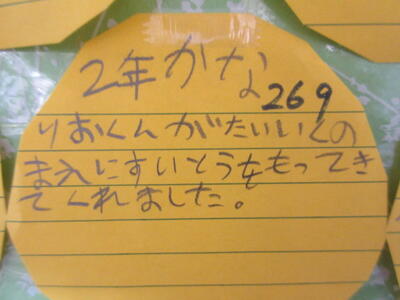 2年かな
269
りおくんがたいいくの
まえにすいとうをもってき
てくれました。